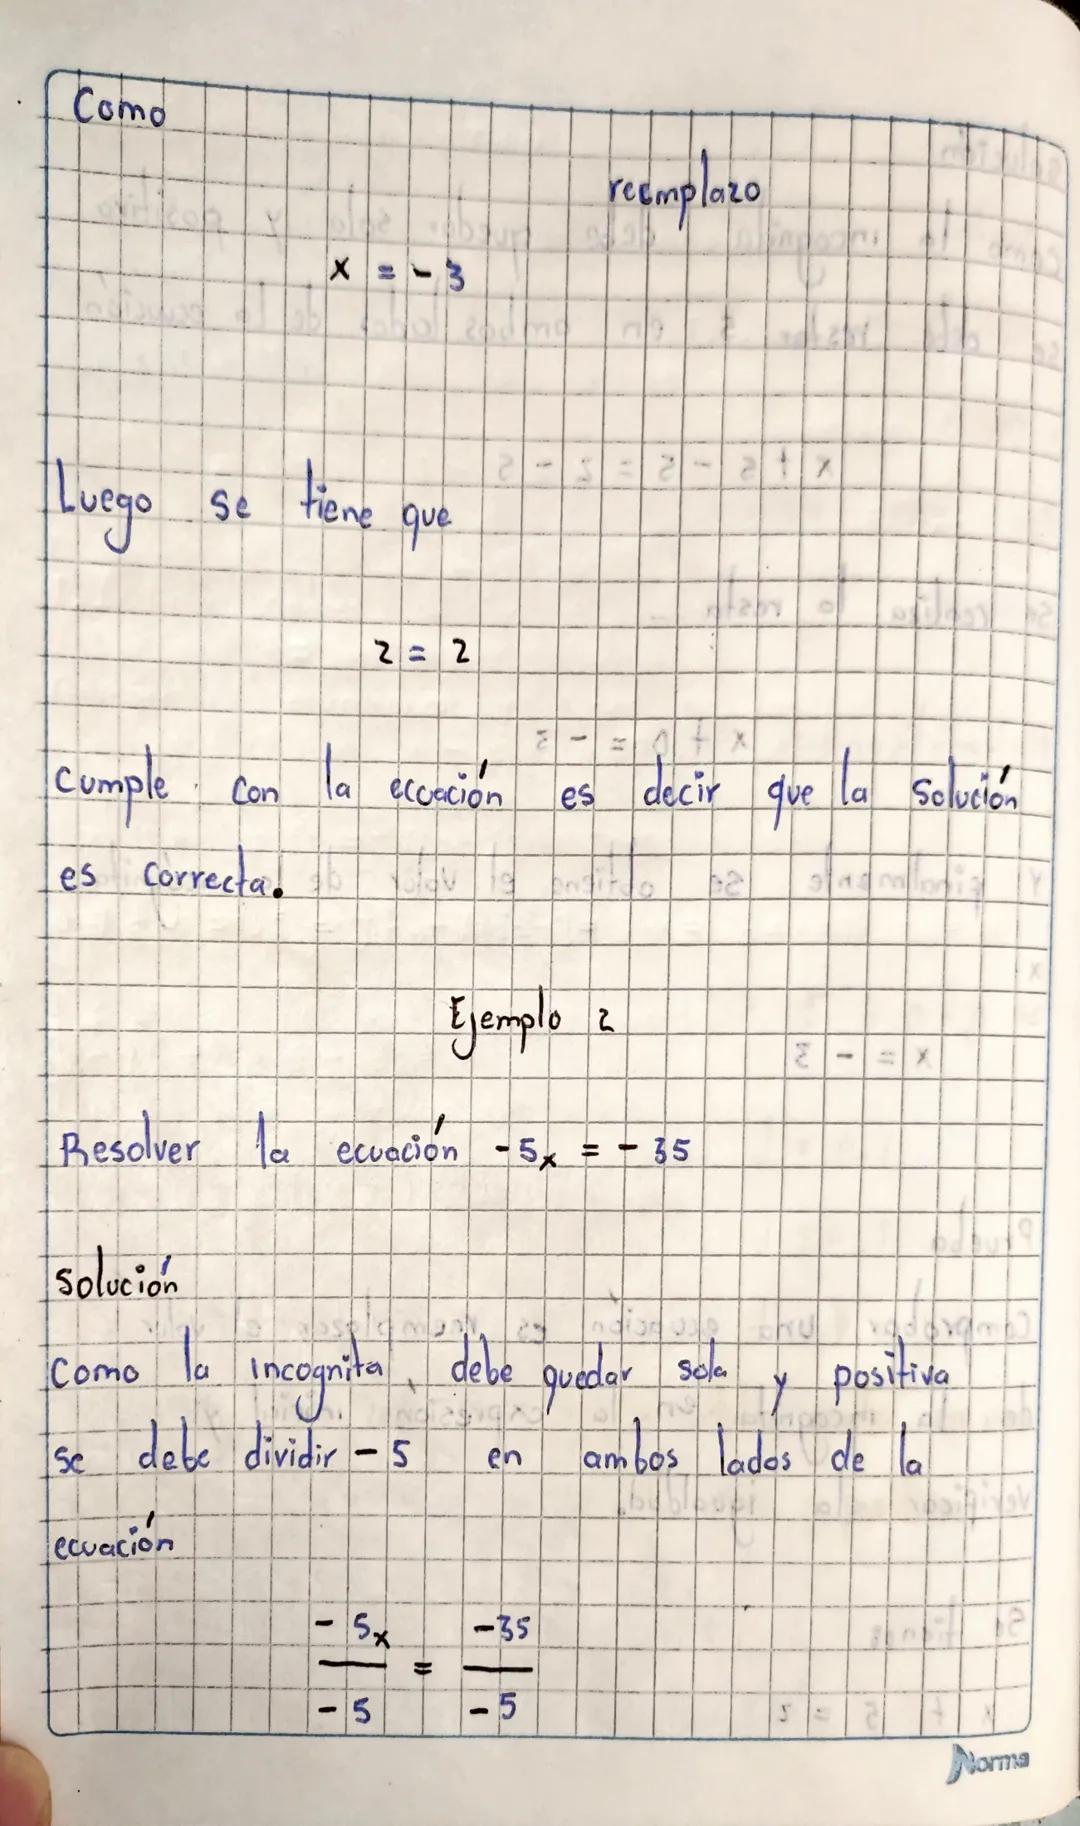 Como
reemplazo
x = - 3
Luego se tiene que
2 = 2
Cumple con la ecuación es decir que la solución
es correcta.
Ejemplo 2
Resolver la ecuación -5x = - 35
solución
Como la incognita, debe quedar sola y positiva
se debe dividir - 5 en ambos lados de la
ecuación
- 5x / - 5 = -35 / - 5
Norma